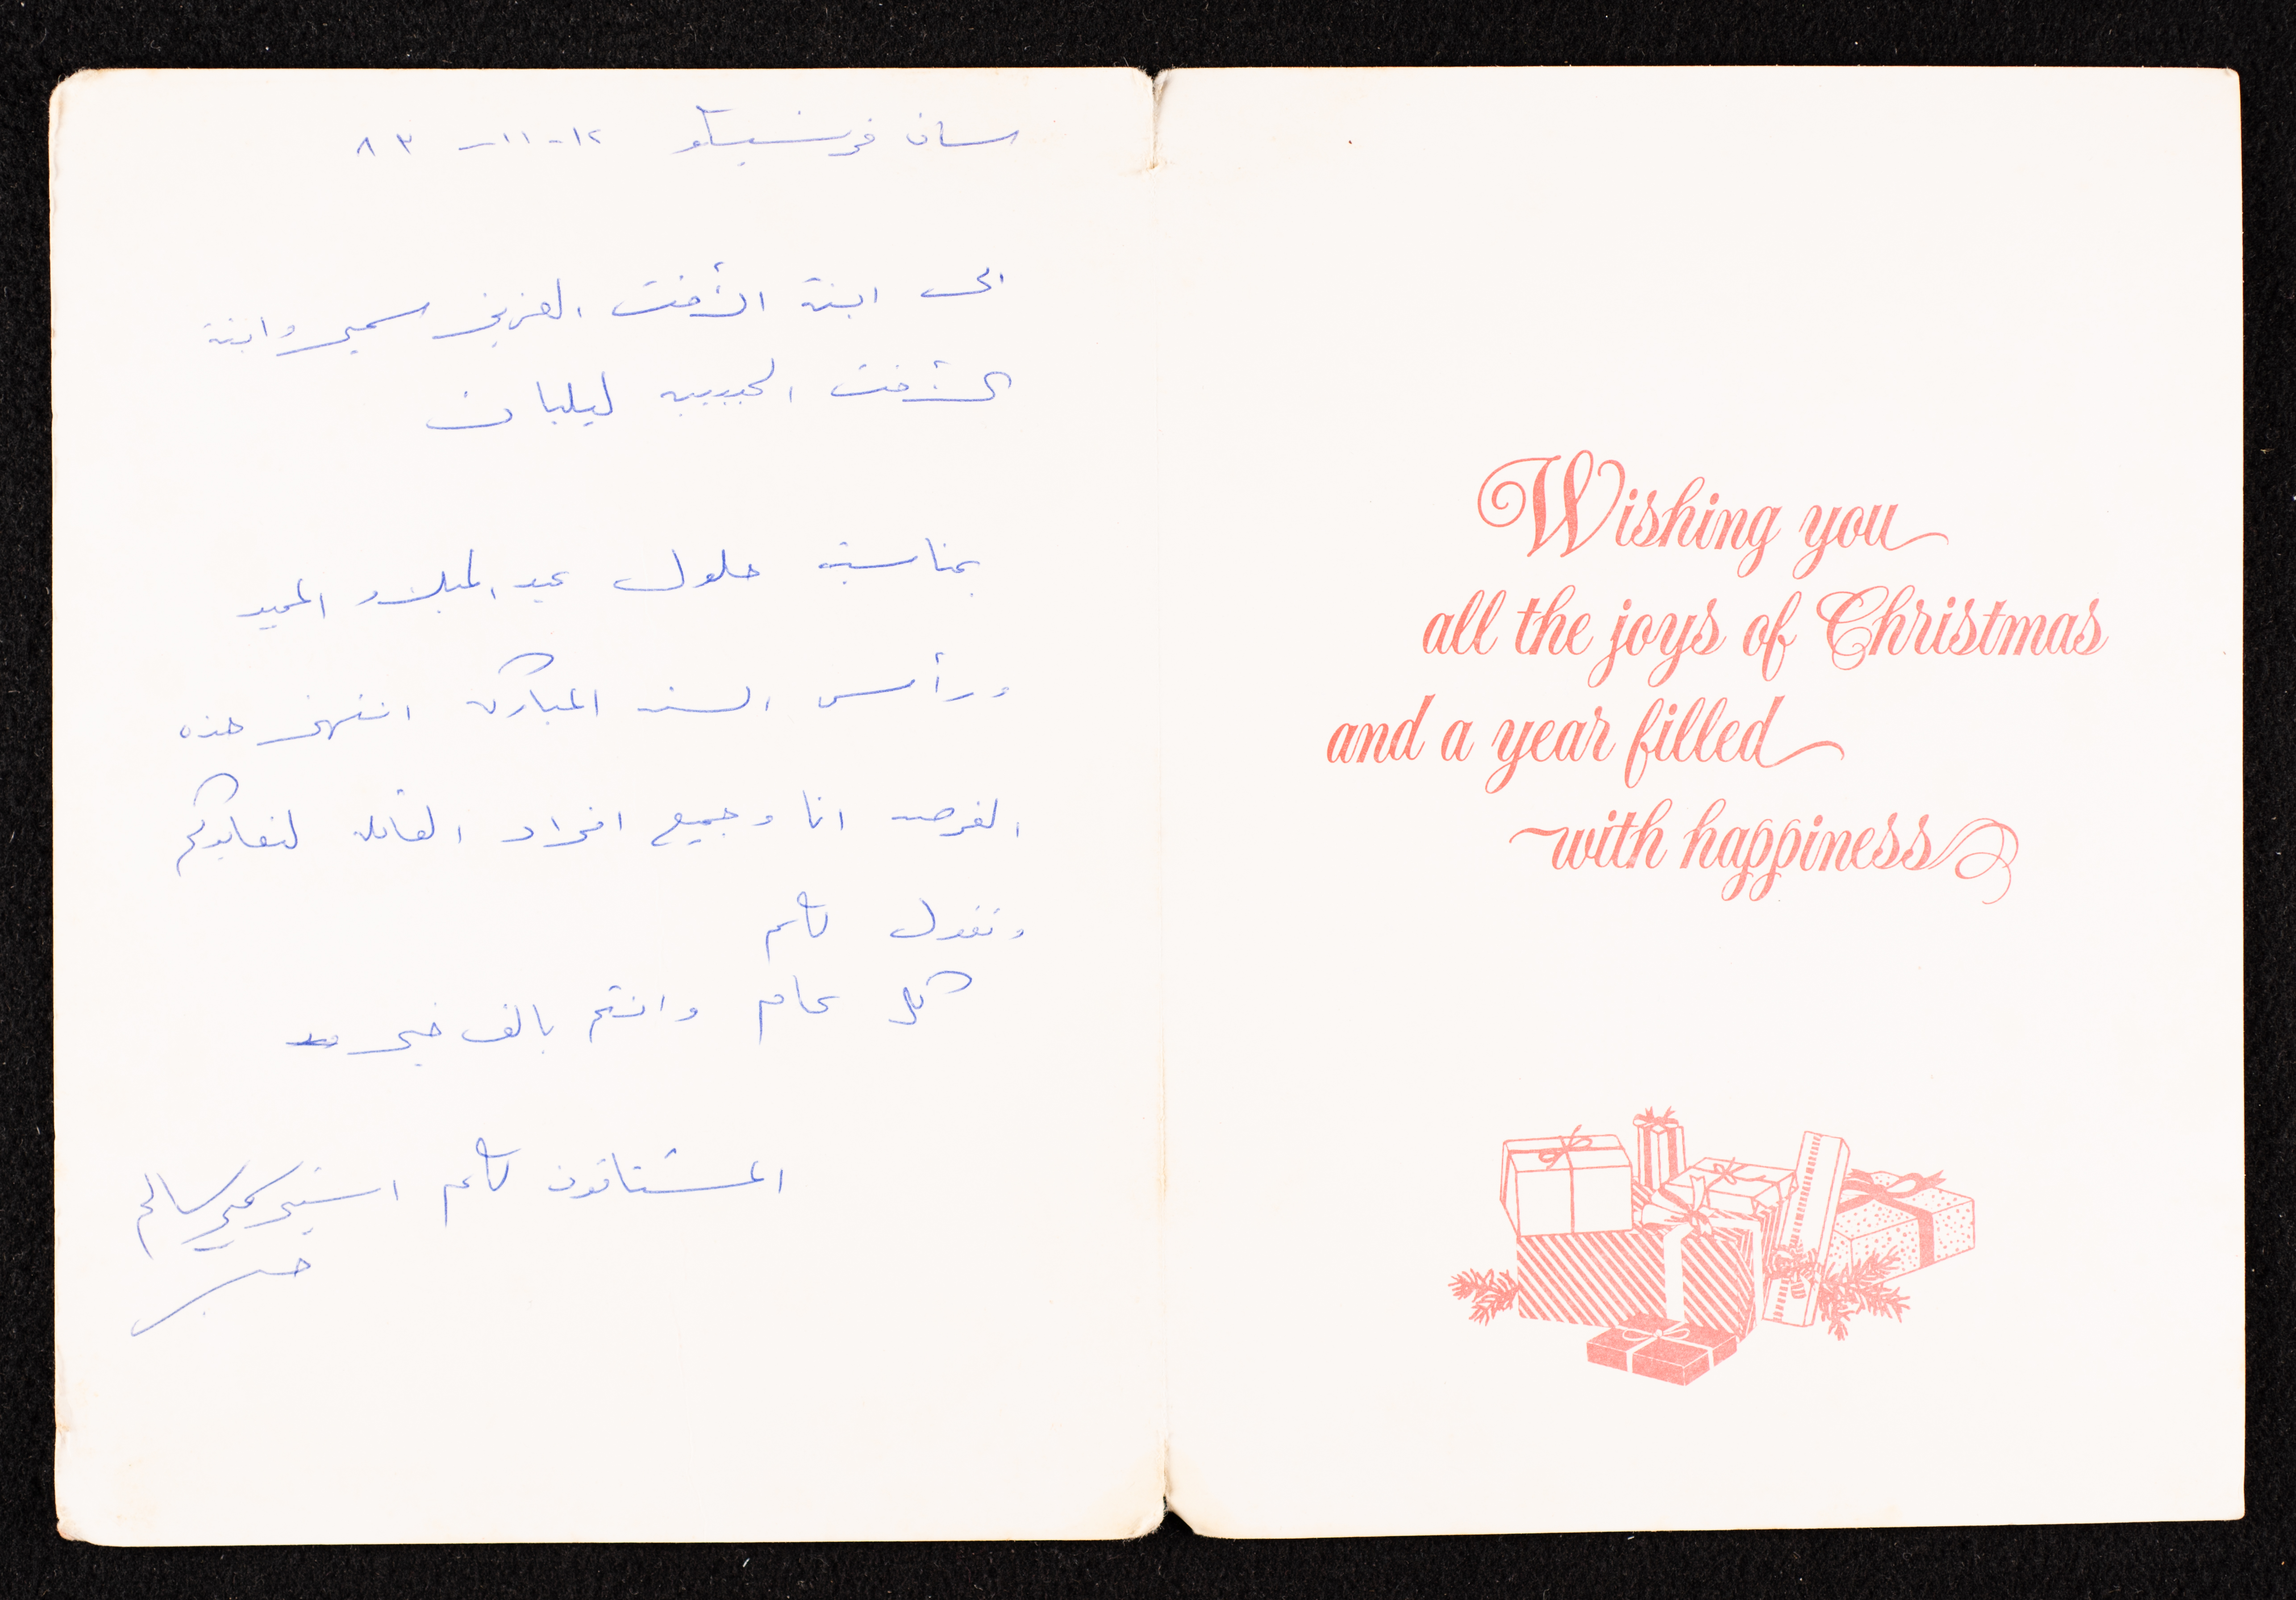 سان فرنسيسكو ١٢-١١-٨٣
الى ابنة الأخت العزيز سمير وابنة
الأخت الحبيبه ليليان
بمناسبة حلول عيد الميلاد المجيد
ورأس السنه المباركه انتهز هذه
الفرصه انا وجميع افراد العائله لنعايدكم
ونقول لكم
كل عام وانتم بالف خير
المشتاقون لكم سالم
Wishing you
all the joys of Christmas
and a year filled
with happiness